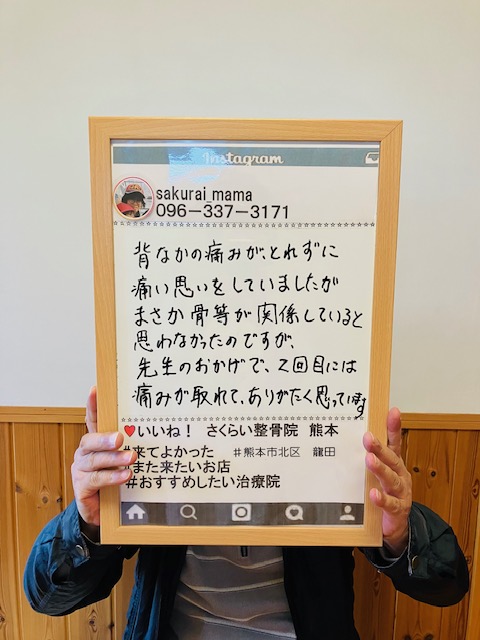 Instagram
sakurai_mama
096-337-3171
背なかの痛みが、とれずに
痛い思いをしていましたが
まさか骨等が関係していると
思わなかったのですが、
先生のおかげで、2回目には
痛みが取れて、ありがたく思っています
♥いいね！ さくらい整骨院 熊本
#来てよかった #熊本市北区 龍田
#また来たいお店
#おすすめしたい治療院